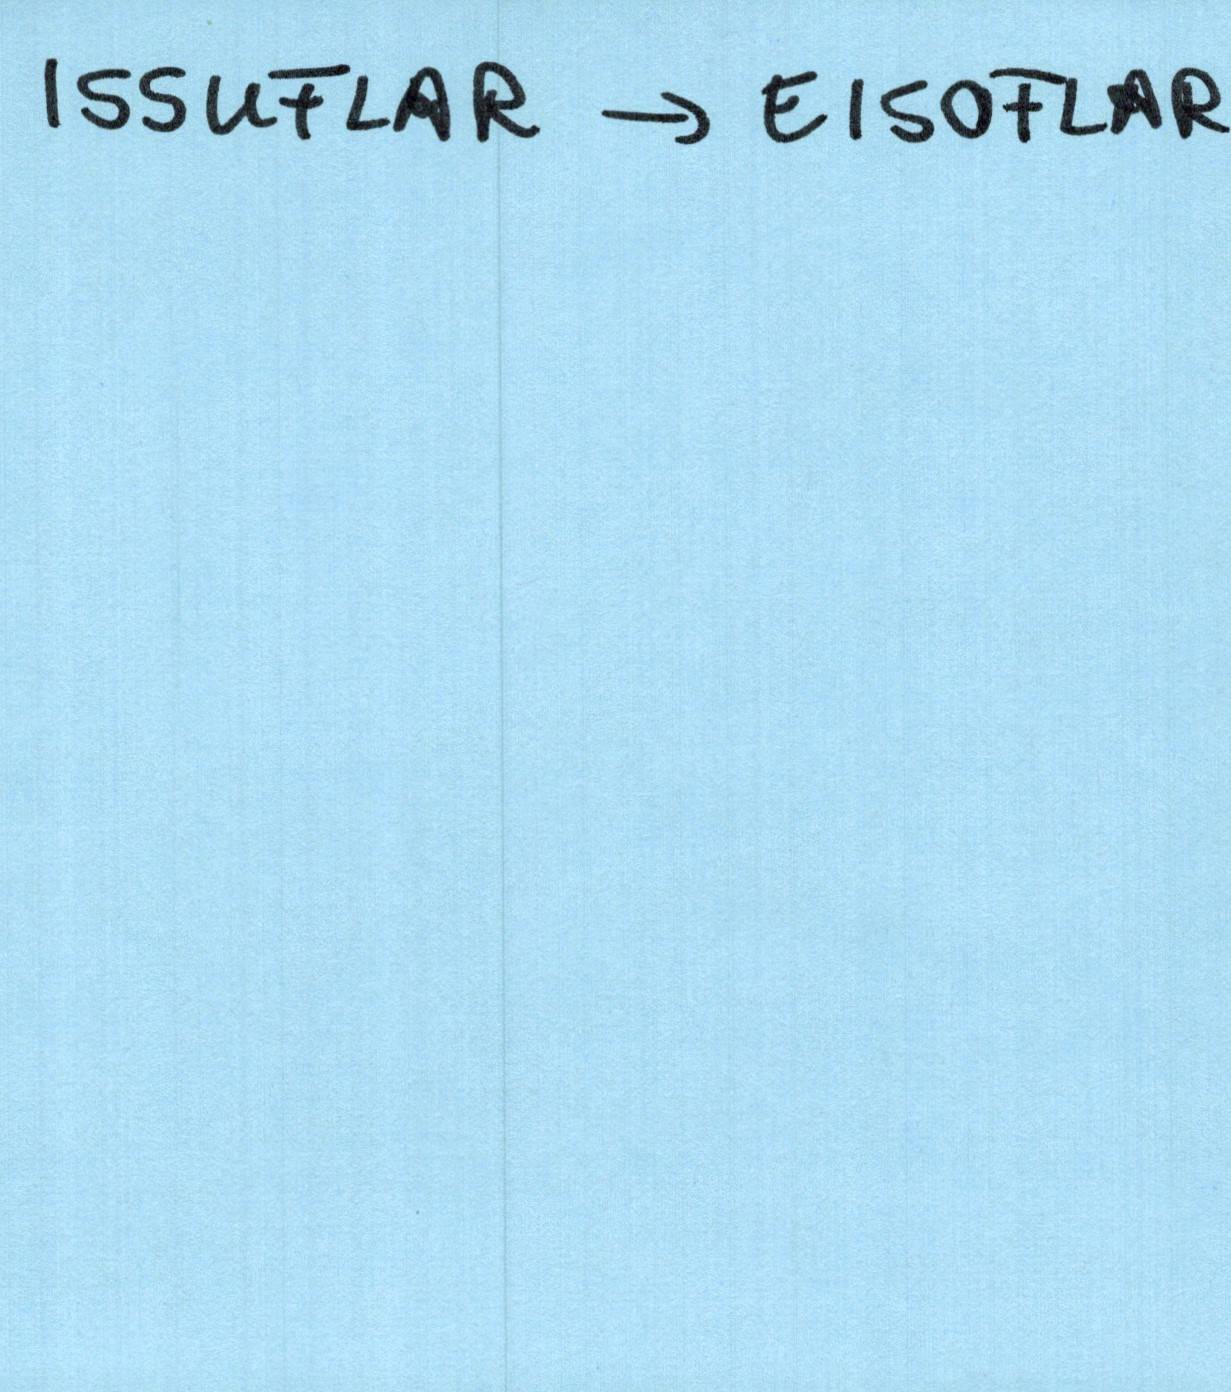 ISSUFLAR → EISOFLAR